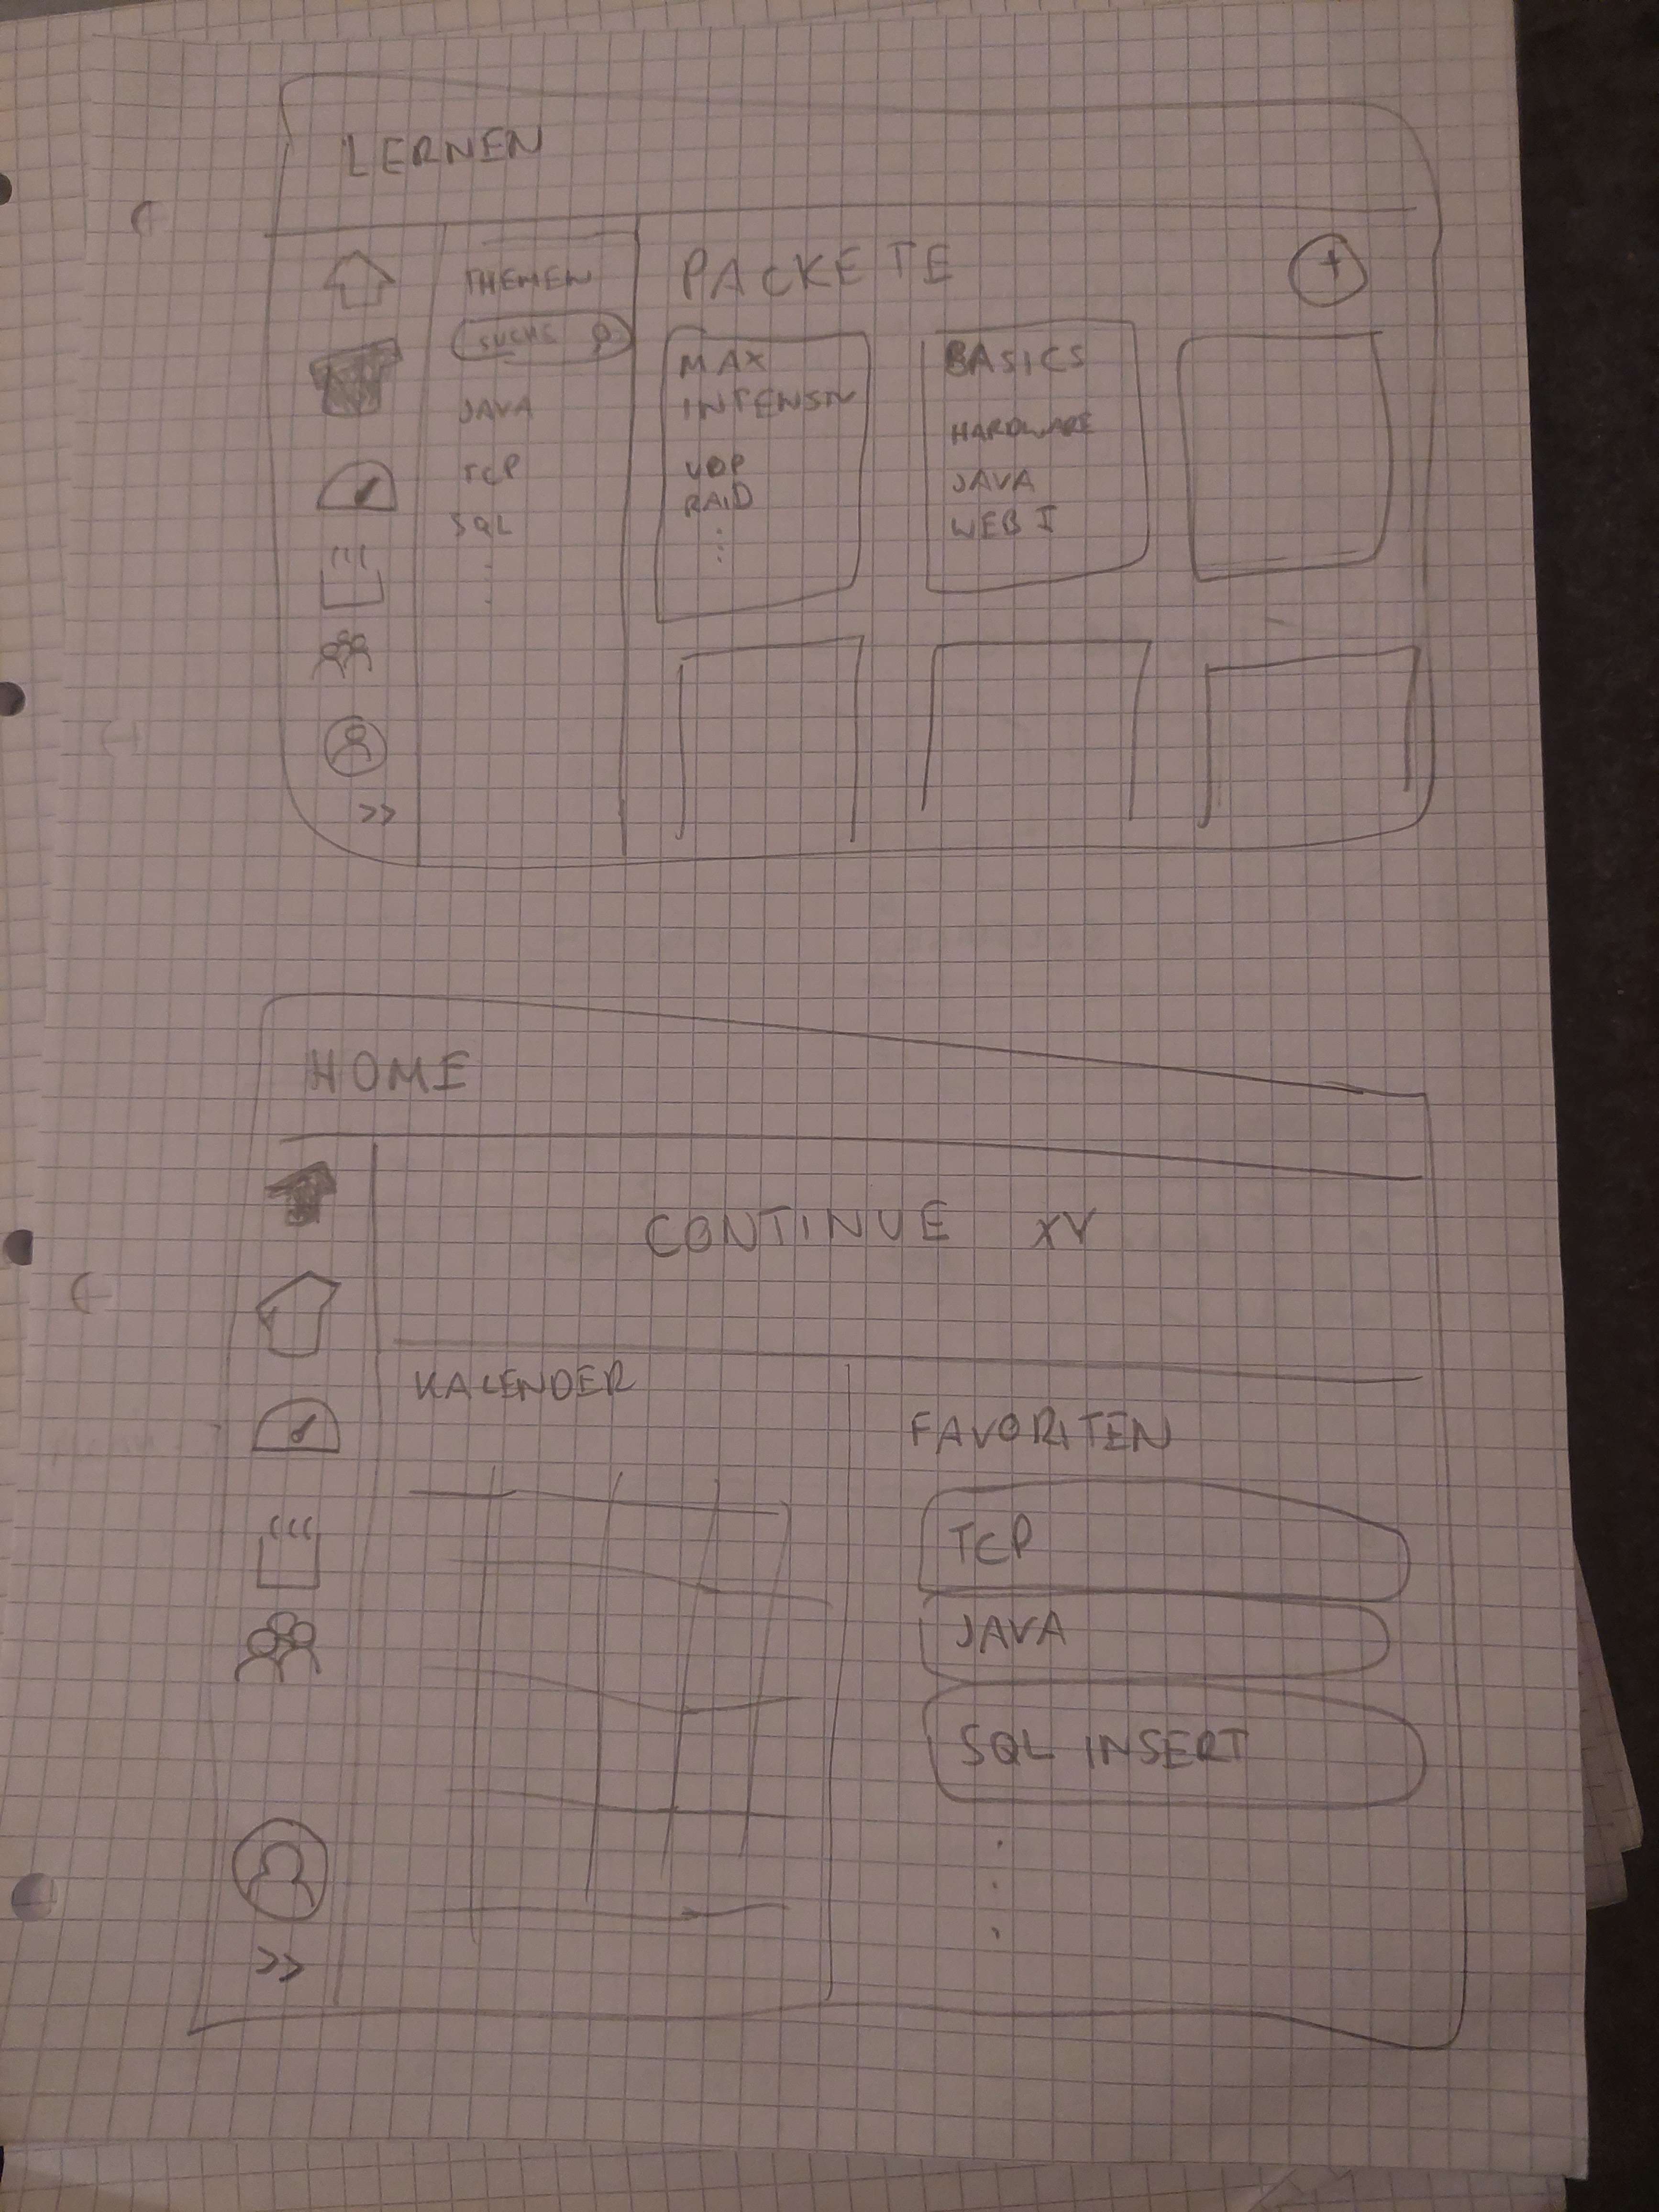 LERNEN
THEMEN
SUCHE
JAVA
TCP
SQL
PACKETE
+
MAX
INTENSIV
UDP
RAID
BASICS
HARDWARE
JAVA
WEB I
>>
HOME
CONTINUE XY
KALENDER
FAVORITEN
TCP
JAVA
SQL INSERT
>>